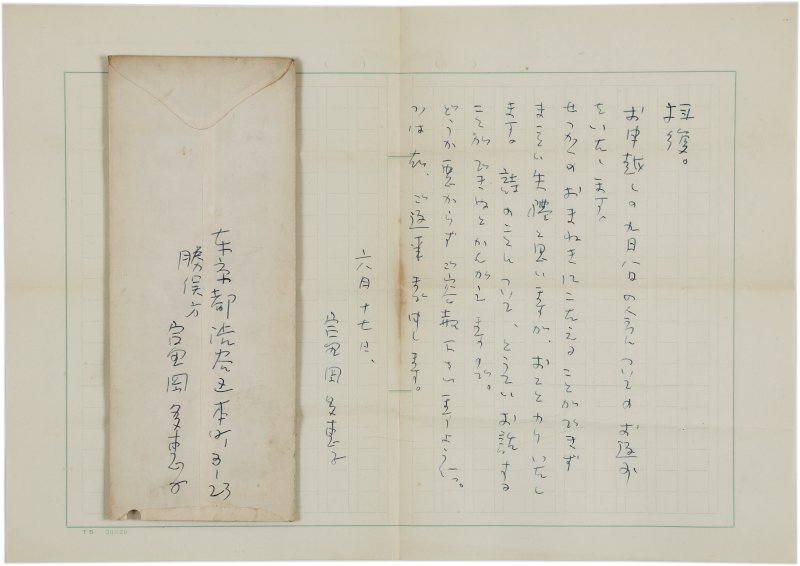 拝復。
お申越しの九月八日の会についてのお返事
をいたします。
せっかくのおまねきにこたえることができず
まことに失禮と思いますが、おことわりいたし
ます。詩のことについて、とうていお話する
ことができぬとかんがえますので。
どうか悪からず御容赦下さいますように。
右、ご返事まで申します。
六月十七日、
富岡多恵子
東京都渋谷区本町3-23
勝俣方
富岡多恵子